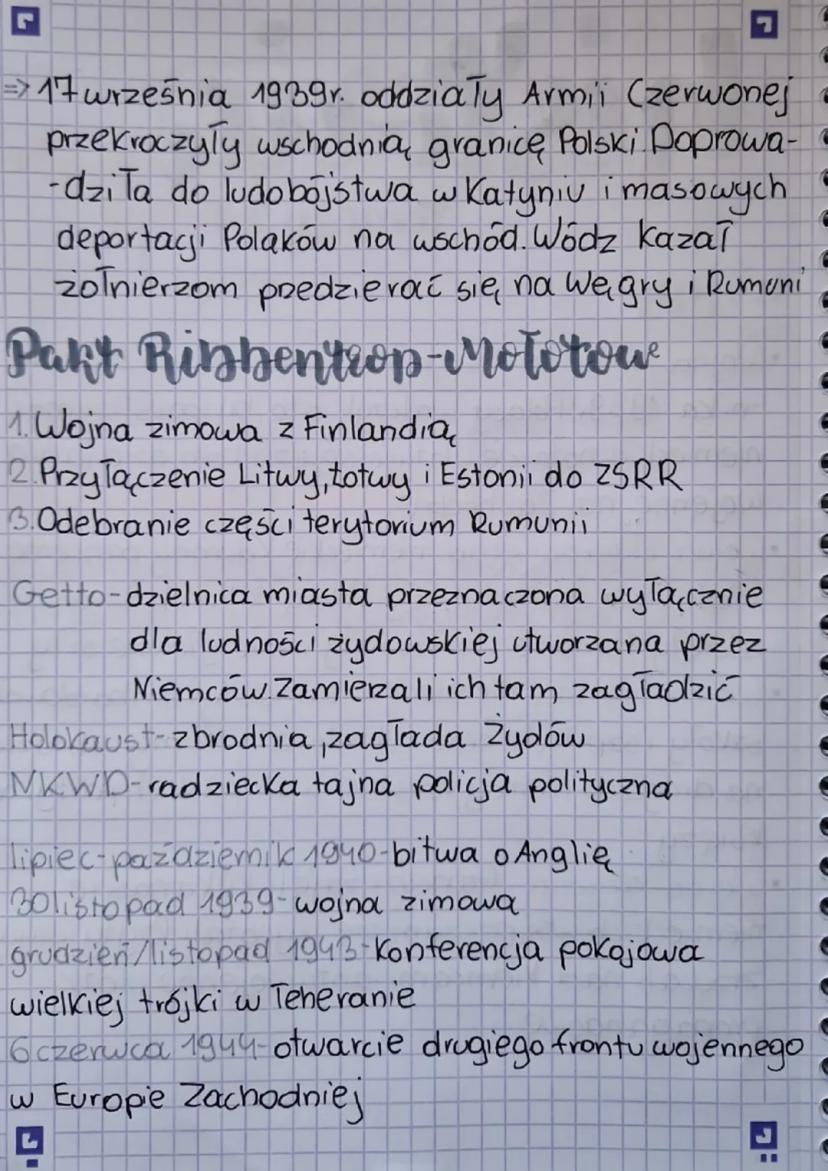 => 17 września 1939r. oddziały Armii Czerwonej
przekroczyły wschodnią granicę Polski. Doprowa-
-dziła do ludobójstwa w Katyniu i masowych
deportacji Polaków na wschód. Wódz kazał
żołnierzom przedzierać się na Węgry i Rumuni
Pakt Ribbentrop-Mołotow
1. Wojna zimowa z Finlandią
2. Przyłączenie Litwy, Łotwy i Estonii do ZSRR
3. Odebranie części terytorium Rumunii
Getto - dzielnica miasta przeznaczona wyłącznie
dla ludności żydowskiej utworzana przez
Niemców. Zamierzali ich tam zagładzić
Holokaust - zbrodnia, zagłada Żydów
NKWD - radziecka tajna policja polityczna
lipiec - październik 1940 - bitwa o Anglię
30 listopad 1939 - wojna zimowa
grudzień/listopad 1943 - Konferencja pokojowa
wielkiej trójki w Teheranie
6 czerwca 1944 - otwarcie drugiego frontu wojennego
w Europie Zachodniej